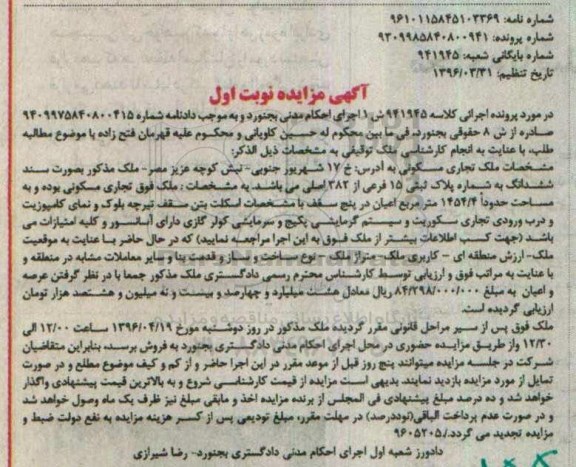 شماره نامه: ۹۶۱۰۱۱۵۸۴۵۱۰۳۳۶۹
شماره پرونده: ۹۳۰۹۹۸۵۸۴۰۸۰۰۹۴۱
شماره بایگانی شعبه: ۹۴۱۹۴۵
تاریخ تنظیم: ۱۳۹۶/۰۳/۳۱
آگهی مزایده نوبت اول
در مورد پرونده اجرائی کلاسه ۹۴۱۹۴۵ ش ۱ اجرای احکام مدنی بجنورد و به موجب دادنامه شماره ۹۴۰۹۹۷۵۸۴۰۸۰۰۴۱۵
صادره از ش ۸ حقوقی بجنورد، فی ما بین محکوم له حسین کاویانی و محکوم علیه قهرمان فتح زاده با موضوع مطالبه
طلب، با عنایت به انجام کارشناسی ملک توقیفی به مشخصات ذیل الذکر:
مشخصات ملک تجاری مسکونی به آدرس: خ ۱۷ شهریور جنوبی- نبش کوچه عزیز مصر- ملک مذکور بصورت سند
ششدانگ به شماره پلاک ثبتی ۱۵ فرعی از ۳۸۲ اصلی می باشد. به مشخصات : ملک فوق تجاری مسکونی بوده و به
مساحت حدوداً ۱۴۵۴/۴ متر مربع اعیان در پنج سقف با مشخصات اسکلت بتن سقف تیرچه بلوک و نمای کامپوزیت
و درب ورودی تجاری سکوریت و سیستم گرمایشی پکیج و سرمایشی کولر گازی دارای آسانسور و کلیه امتیازات می
باشد (جهت کسب اطلاعات بیشتر از ملک فوق به این اجرا مراجعه نمایید) که در حال حاضر با عنایت به موقعیت
ملک- ارزش منطقه ای - کاربری ملک- متراژ ملک - نوع ساخت و ساز و قدمت بنا و سایر معاملات مشابه در منطقه و
با عنایت به مراتب فوق و ارزیابی توسط کارشناس محترم رسمی دادگستری ملک مذکور جمعا با در نظر گرفتن عرصه
و اعیان به مبلغ ۸۴/۲۹۸/۰۰۰/۰۰۰ ریال معادل هشت میلیارد و چهارصد و بیست و نه میلیون و هشتصد هزار تومان
ارزیابی گردیده است.
ملک فوق پس از سیر مراحل قانونی مقرر گردیده ملک مذکور در روز دوشنبه مورخ ۱۳۹۶/۰۴/۱۹ ساعت ۱۲/۰۰ الی
۱۲/۳۰ واز طریق مزایده حضوری در محل اجرای احکام مدنی دادگستری بجنورد به فروش برسد، بنابراین متقاضیان
شرکت در جلسه مزایده میتوانند پنج روز قبل از موعد مقرر در این اجرا حاضر و از کم و کیف موضوع مطلع و در صورت
تمایل از مورد مزایده بازدید نمایند. بدیهی است مزایده از قیمت کارشناسی شروع و به بالاترین قیمت پیشنهادی واگذار
خواهد شد و ده درصد مبلغ پیشنهادی فی المجلس از برنده مزایده اخذ و مابقی مبلغ نیز ظرف یک ماه وصول خواهد شد
و در صورت عدم پرداخت الباقی(نوددرصد) در مهلت مقرر، مبلغ تودیعی پس از کسر هزینه مزایده به نفع دولت ضبط و
مزایده تجدید می گردد./۹۶۰۵۲۰۵
دادورز شعبه اول اجرای احکام مدنی دادگستری بجنورد- رضا شیرازی